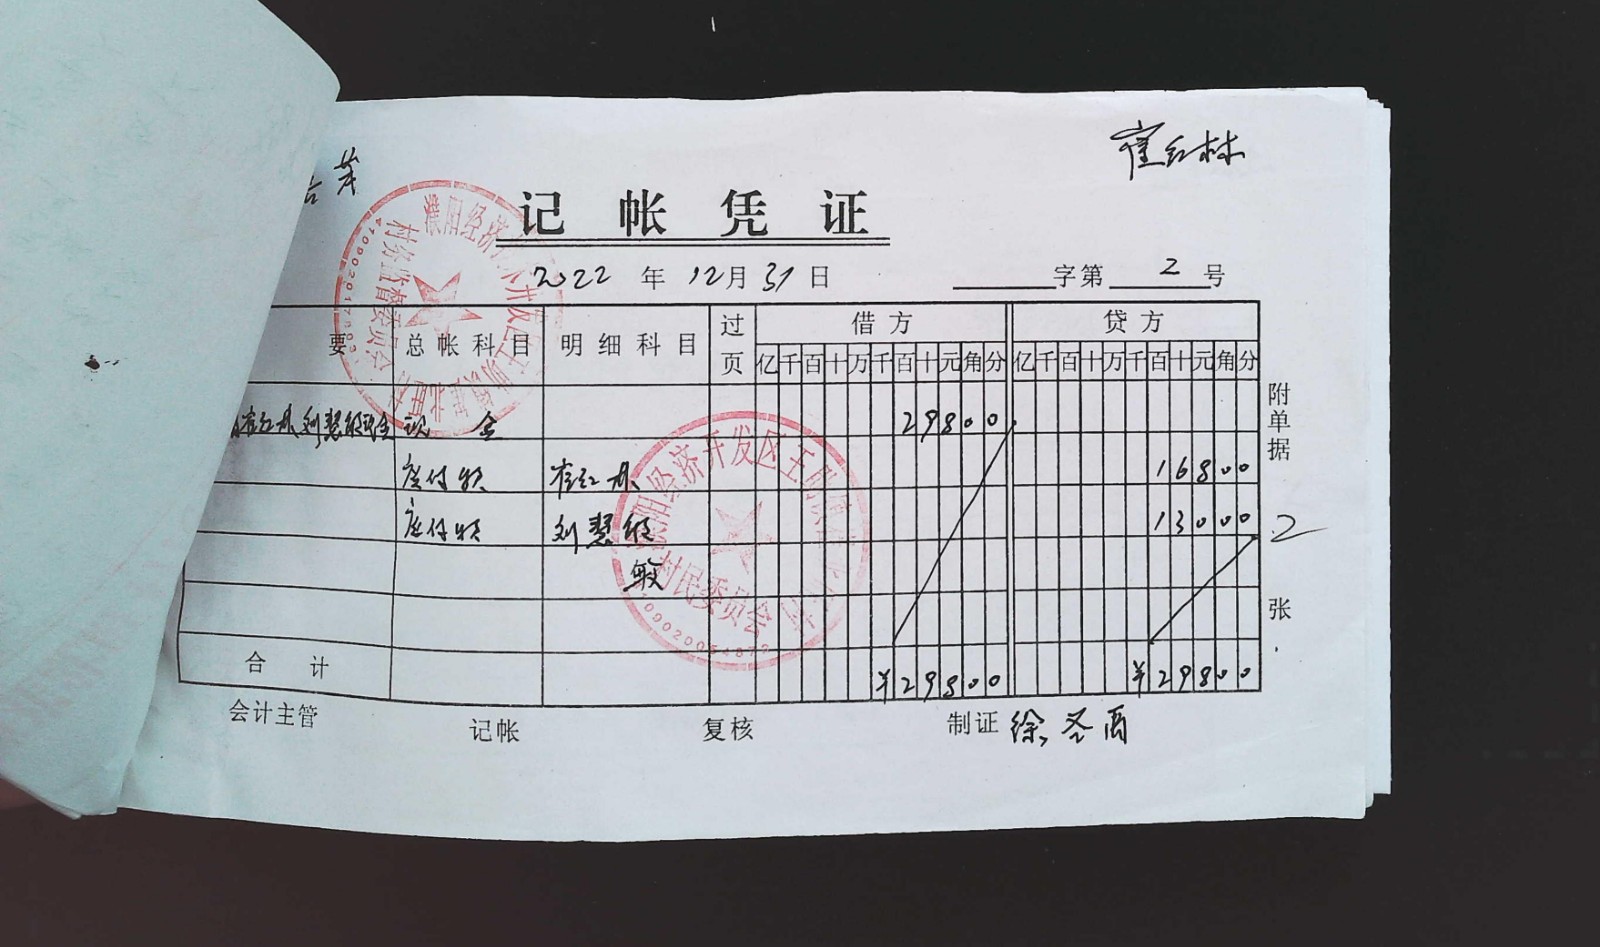 崔红林
记帐凭证
2022年12月31日 字第2号
要 总帐科目 明细科目 过页 借方 贷方
亿千百十万千百十元角分 亿千百十万千百十元角分
崔红林刘慧敏现金 现金 29800
应付款 崔红林 16800
应付款 刘慧敏 13000
敏
合计 ¥29800 ¥29800
附单据 2 张
会计主管 记帐 复核 制证 徐圣雨
濮阳经济开发区王助镇
村务监督委员会
濮阳经济开发区王助镇
村民委员会